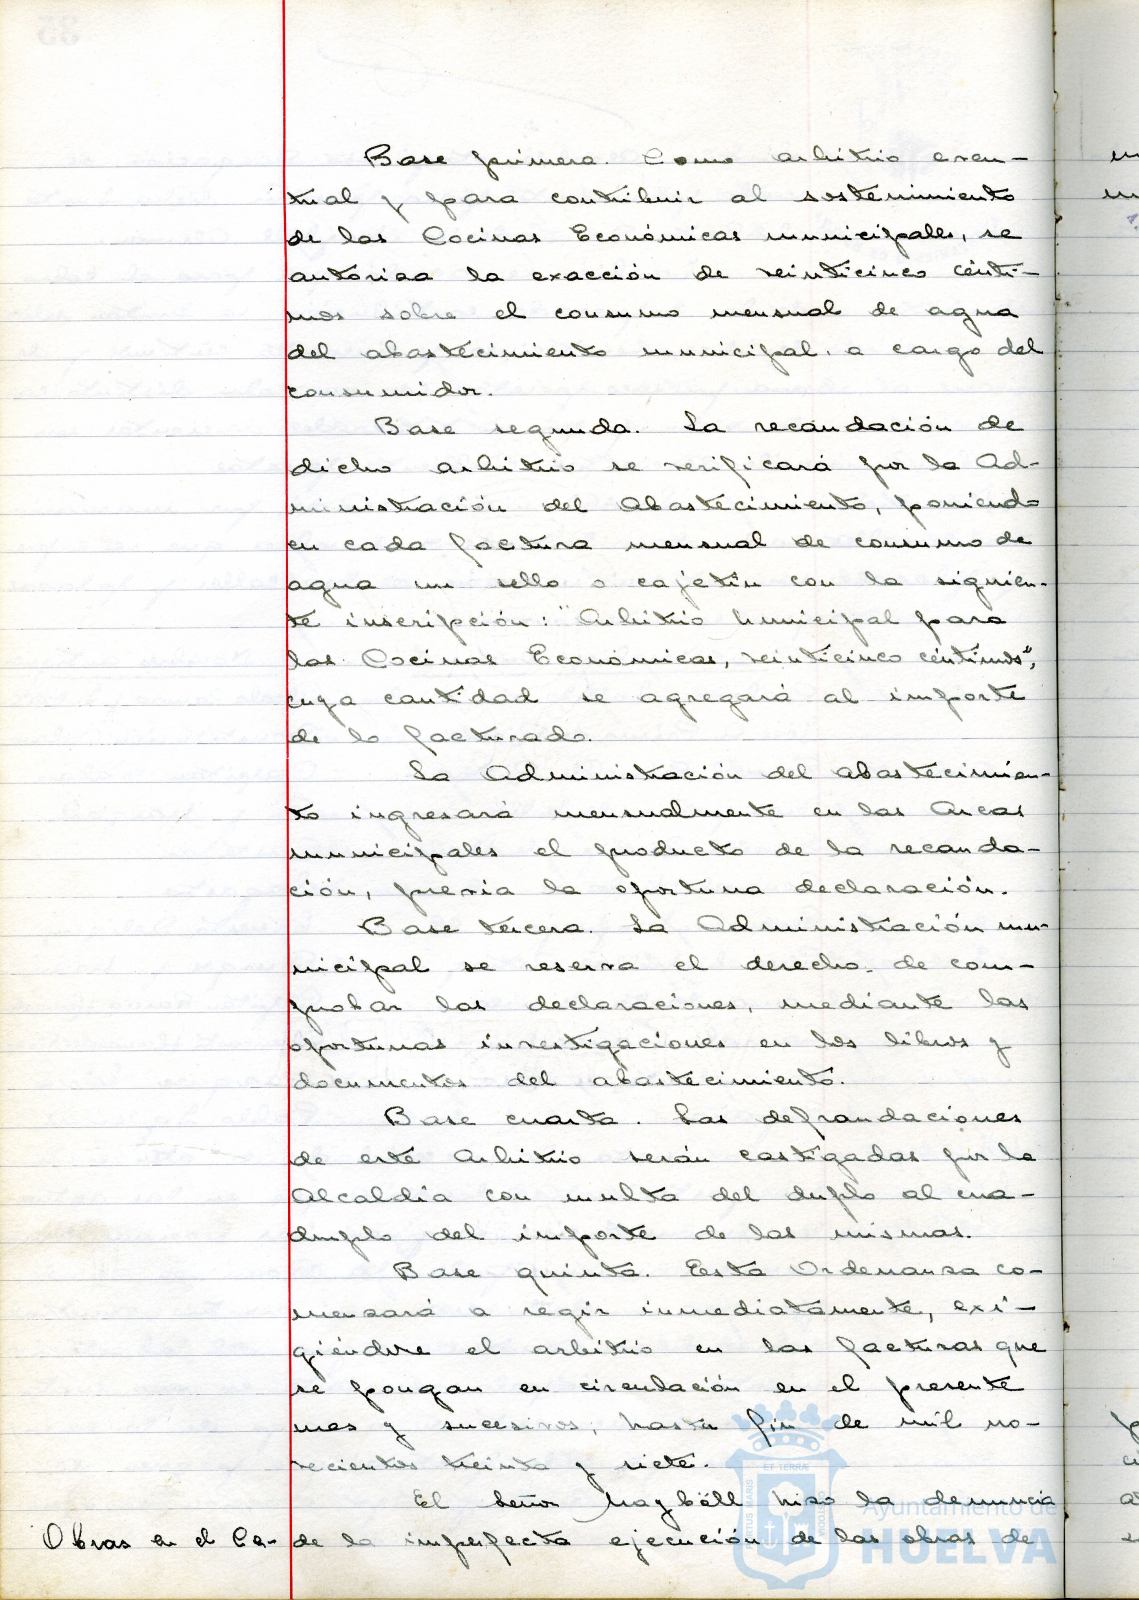 Base primera. Como arbitrio even-
tual y para contribuir al sostenimiento
de las Cocinas Económicas municipales, se
autoriza la exacción de veinticinco cénti-
mos sobre el consumo mensual de agua
del abastecimiento municipal, a cargo del
consumidor.
Base segunda. La recaudación de
dicho arbitrio se verificará por la Ad-
ministración del Abastecimiento, poniendo
en cada factura mensual de consumo de
agua un sello o cajetín con la siguien-
te inscripción: "Arbitrio municipal para
las Cocinas Económicas, veinticinco céntimos",
cuya cantidad se agregará al importe
de lo facturado.
La Administración del abastecimien-
to ingresará mensualmente en las Arcas
municipales el producto de la recauda-
ción, previa la oportuna declaración.
Base tercera. La Administración mu-
nicipal se reserva el derecho de com-
probar las declaraciones, mediante las
oportunas investigaciones en los libros y
documentos del abastecimiento.
Base cuarta. Las defraudaciones
de este Arbitrio serán castigadas por la
Alcaldía con multa del duplo al cua-
druplo del importe de las mismas.
Base quinta. Eesta Ordenansa co-
mensará a regir inmediatamente, exi-
giéndose el arbitrio en las facturas que
se pongan en circulación en el presente
mes y sucesivos, hasta fin de mil no-
vecientos treinta y siete.
El Señor hizo la denuncia
Obras en el Ce- de la imperfecta ejecución de las obras de
Ayuntamiento de
HUELVA